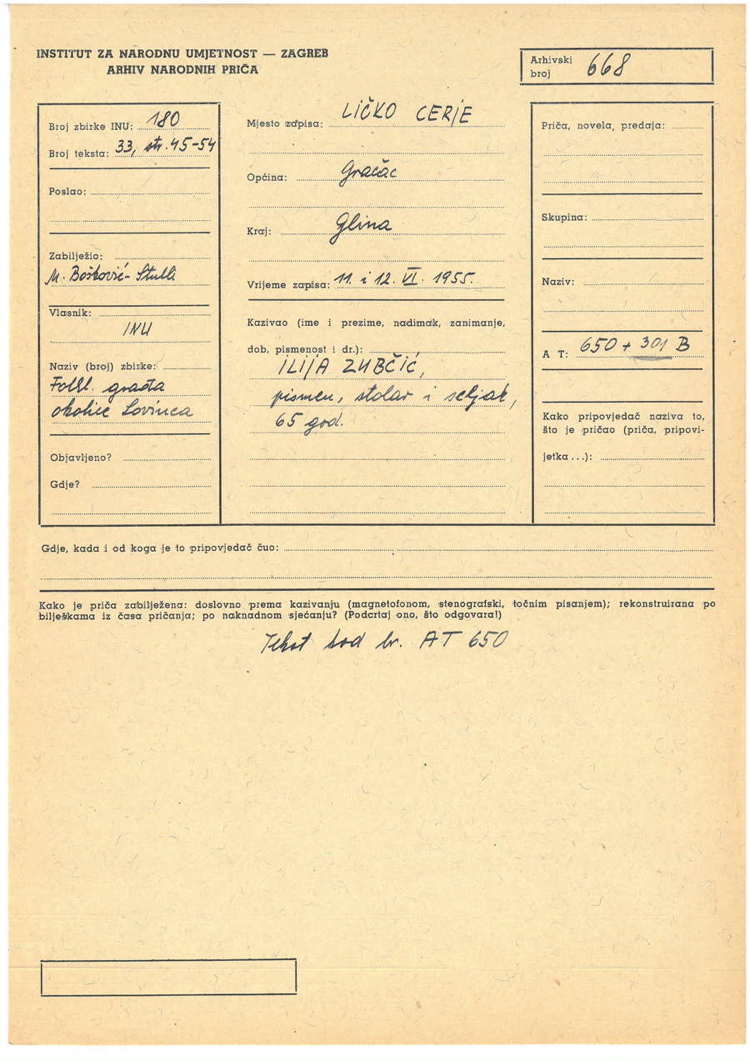 INSTITUT ZA NARODNU UMJETNOST — ZAGREB
ARHIV NARODNIH PRIČA
Arhivski
broj 668
Broj zbirke INU: 180
Broj teksta: 33, str. 45-54
Poslao:
Zabilježio:
M. Bošković-Stulli
Vlasnik:
INU
Naziv (broj) zbirke:
Folkl. građa
okolice Lovinca
Objavljeno?
Gdje?
Mjesto zapisa: LIČKO CERJE
Općina: Gračac
Kraj: Glina
Vrijeme zapisa: 11. i 12. VI. 1955.
Kazivao (ime i prezime, nadimak, zanimanje,
dob, pismenost i dr.):
ILIJA ZUBČIĆ,
pismen, stolar i seljak,
65 god.
Priča, novela, predaja:
Skupina:
Naziv:
A T: 650 + 301 B
Kako pripovjedač naziva to,
što je pričao (priča, pripovi-
jetka...):
Gdje, kada i od koga je to pripovjedač čuo:
Kako je priča zabilježena: doslovno prema kazivanju (magnetofonom, stenografski, točnim pisanjem); rekonstruirana po
bilješkama iz časa pričanja; po naknadnom sjećanju? (Podcrtaj ono, što odgovara!)
Tekst kod br. AT 650